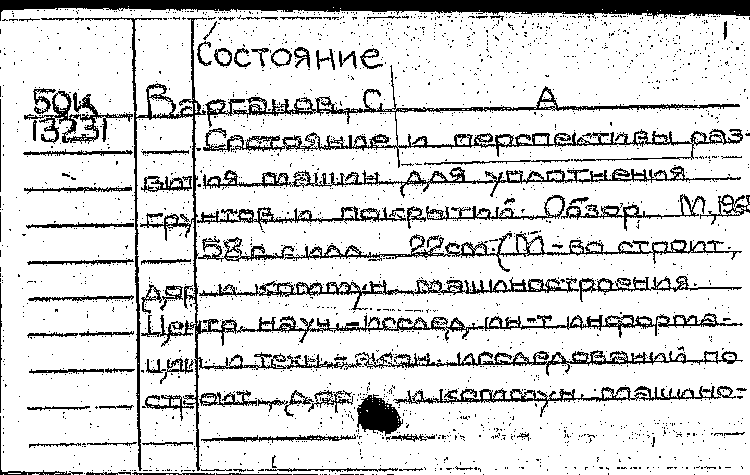 1
Состояние
50к Варганов, С А
13231 Состояние и перспективы раз-
вития машин для уплотнения
грунтов и покрытий. Обзор. М., 1965
58 с. с илл. 22см (М-во строит.,
дор. и коммун. машиностроения.
Центр. науч.-исслед. ин-т информа-
ции и техн.-экон. исследований по
строит., дор. и коммун. машино-